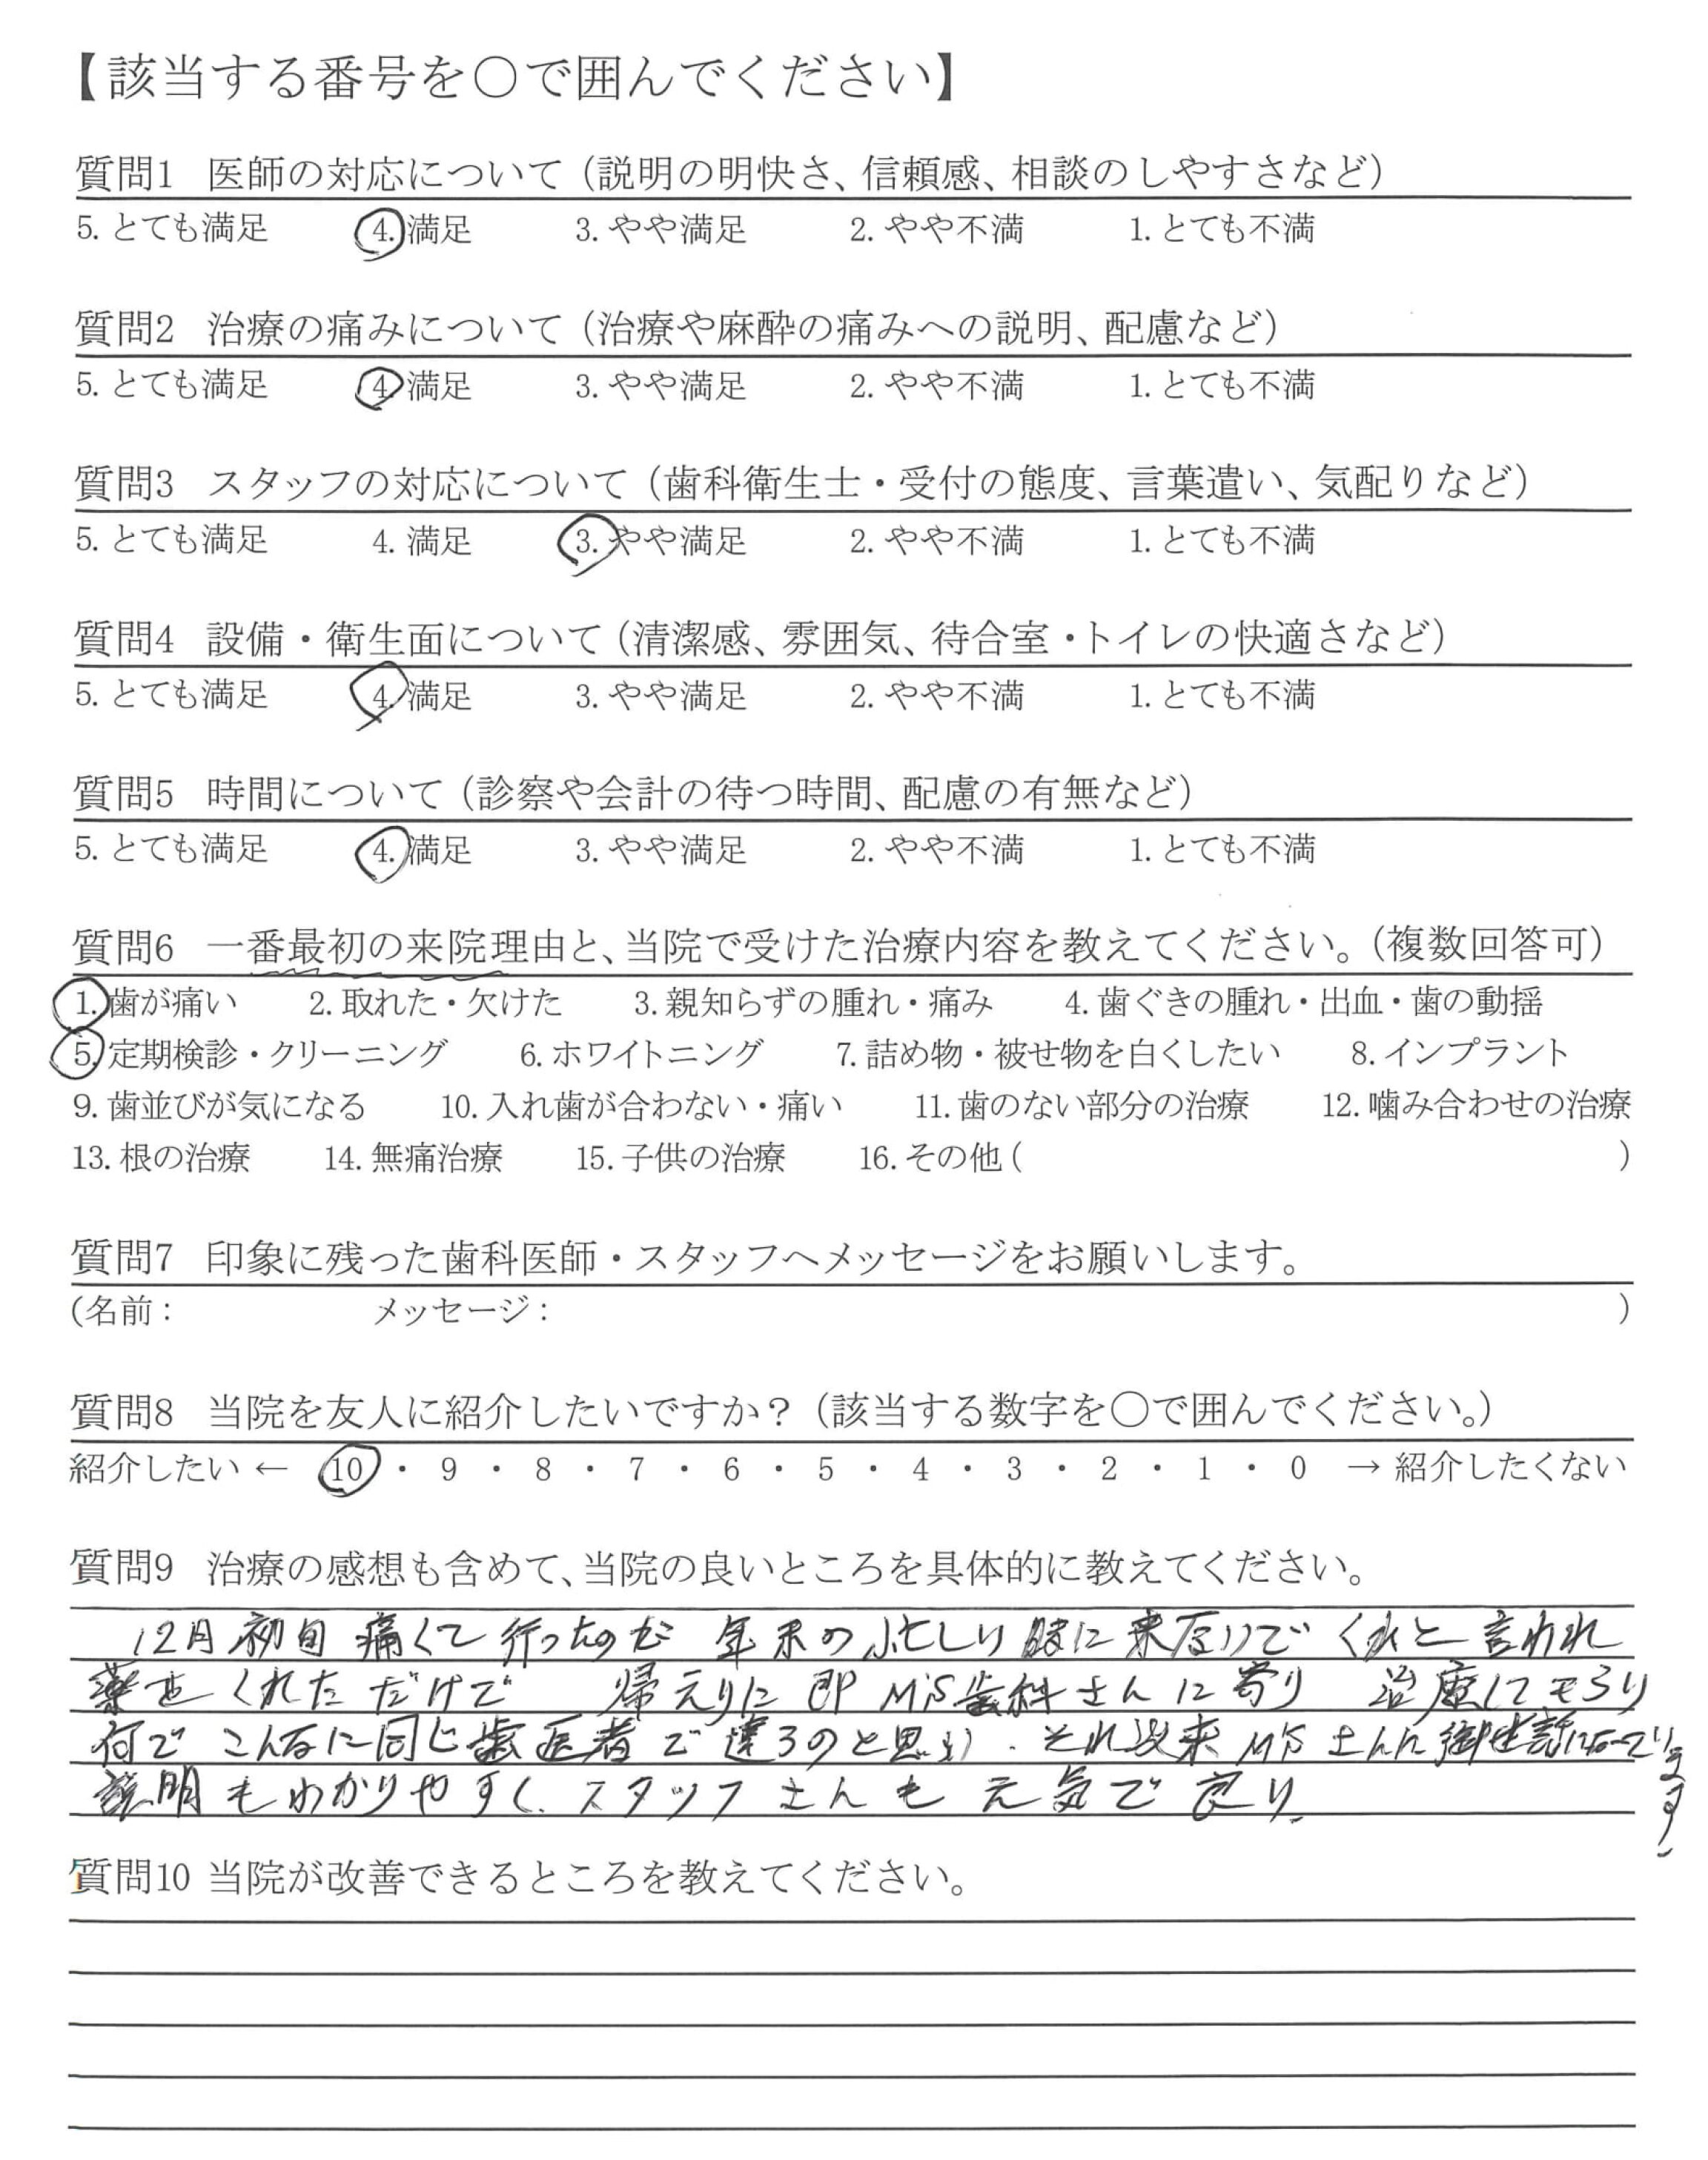 【該当する番号を○で囲んでください】
質問1 医師の対応について（説明の明快さ、信頼感、相談のしやすさなど）
5. とても満足 4. 満足 3. やや満足 2. やや不満 1. とても不満
質問2 治療の痛みについて（治療や麻酔の痛みへの説明、配慮など）
5. とても満足 4. 満足 3. やや満足 2. やや不満 1. とても不満
質問3 スタッフの対応について（歯科衛生士・受付の態度、言葉遣い、気配りなど）
5. とても満足 4. 満足 3. やや満足 2. やや不満 1. とても不満
質問4 設備・衛生面について（清潔感、雰囲気、待合室・トイレの快適さなど）
5. とても満足 4. 満足 3. やや満足 2. やや不満 1. とても不満
質問5 時間について（診察や会計の待つ時間、配慮の有無など）
5. とても満足 4. 満足 3. やや満足 2. やや不満 1. とても不満
質問6 一番最初の来院理由と、当院で受けた治療内容を教えてください。（複数回答可）
1. 歯が痛い 2. 取れた・欠けた 3. 親知らずの腫れ・痛み 4. 歯ぐきの腫れ・出血・歯の動揺
5. 定期検診・クリーニング 6. ホワイトニング 7. 詰め物・被せ物を白くしたい 8. インプラント
9. 歯並びが気になる 10. 入れ歯が合わない・痛い 11. 歯のない部分の治療 12. 噛み合わせの治療
13. 根の治療 14. 無痛治療 15. 子供の治療 16. その他（ ）
質問7 印象に残った歯科医師・スタッフへメッセージをお願いします。
（名前： メッセージ： ）
質問8 当院を友人に紹介したいですか？（該当する数字を○で囲んでください。）
紹介したい ← 10 ・ 9 ・ 8 ・ 7 ・ 6 ・ 5 ・ 4 ・ 3 ・ 2 ・ 1 ・ 0 → 紹介したくない
質問9 治療の感想も含めて、当院の良いところを具体的に教えてください。
12月初旬 痛くて行ったのが 年末の忙しい時に来ないでくれと言われ
薬をくれただけで 帰えりに即 M'S歯科さんに寄り 治療してもらい
何でこんなに同じ歯医者で違うのと思い、それ以来 M'S さんに御世話になっています。
説明もわかりやすく、スタッフさんも元気で良い。
質問10 当院が改善できるところを教えてください。